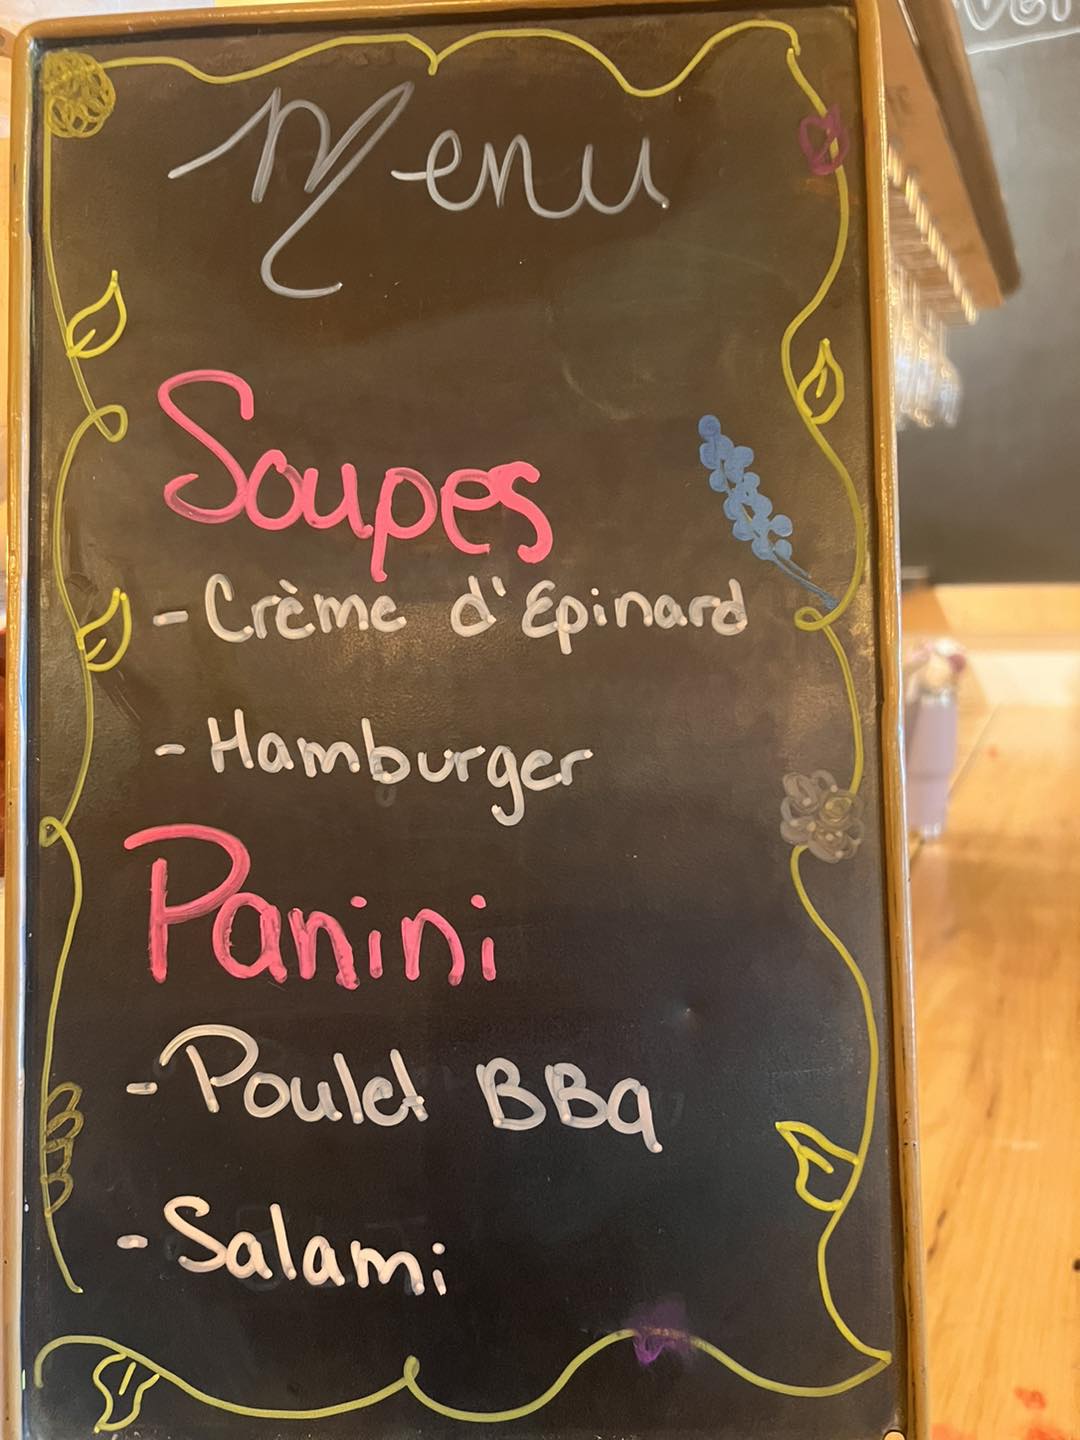 Menu
Soupes
- Crème d'Epinard
- Hamburger
Panini
- Poulet BBQ
- Salami